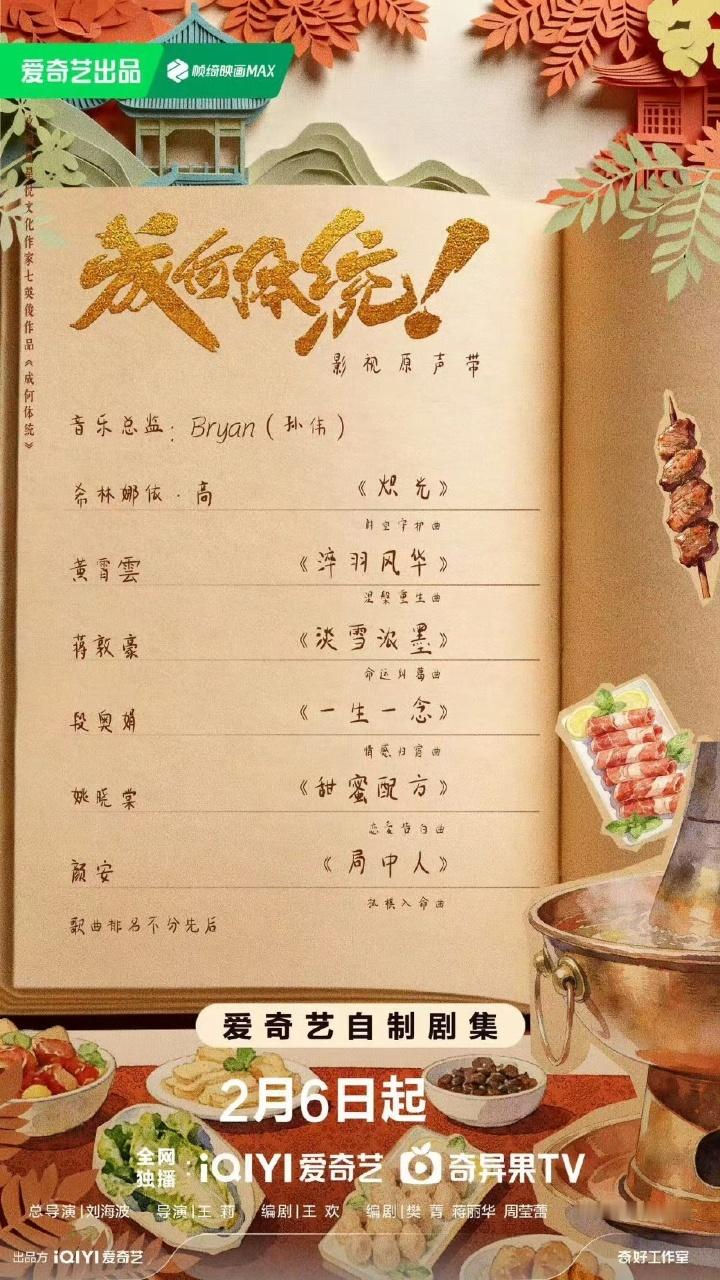 爱奇艺出品 帧绮映画MAX
文化作家七英俊作品《成何体统》
成何体统!
影视原声带
音乐总监:Bryan(孙伟)
希林娜依·高 《炽光》
时空守护曲
黄霄雲 《淬羽风华》
涅槃重生曲
蒋敦豪 《淡雪浓墨》
命运纠葛曲
段奥娟 《一生一念》
情感归宿曲
姚晓棠 《甜蜜配方》
恋爱告白曲
颜安 《局中人》
执棋入命曲
歌曲排名不分先后
爱奇艺自制剧集
2月6日起
全网独播: iQIYI 爱奇艺 奇异果TV
总导演|刘海波 导演|王莉 编剧|王欢 编剧|樊萻 蒋丽华 周莹蕾
出品方 iQIYI 爱奇艺 奇好工作室